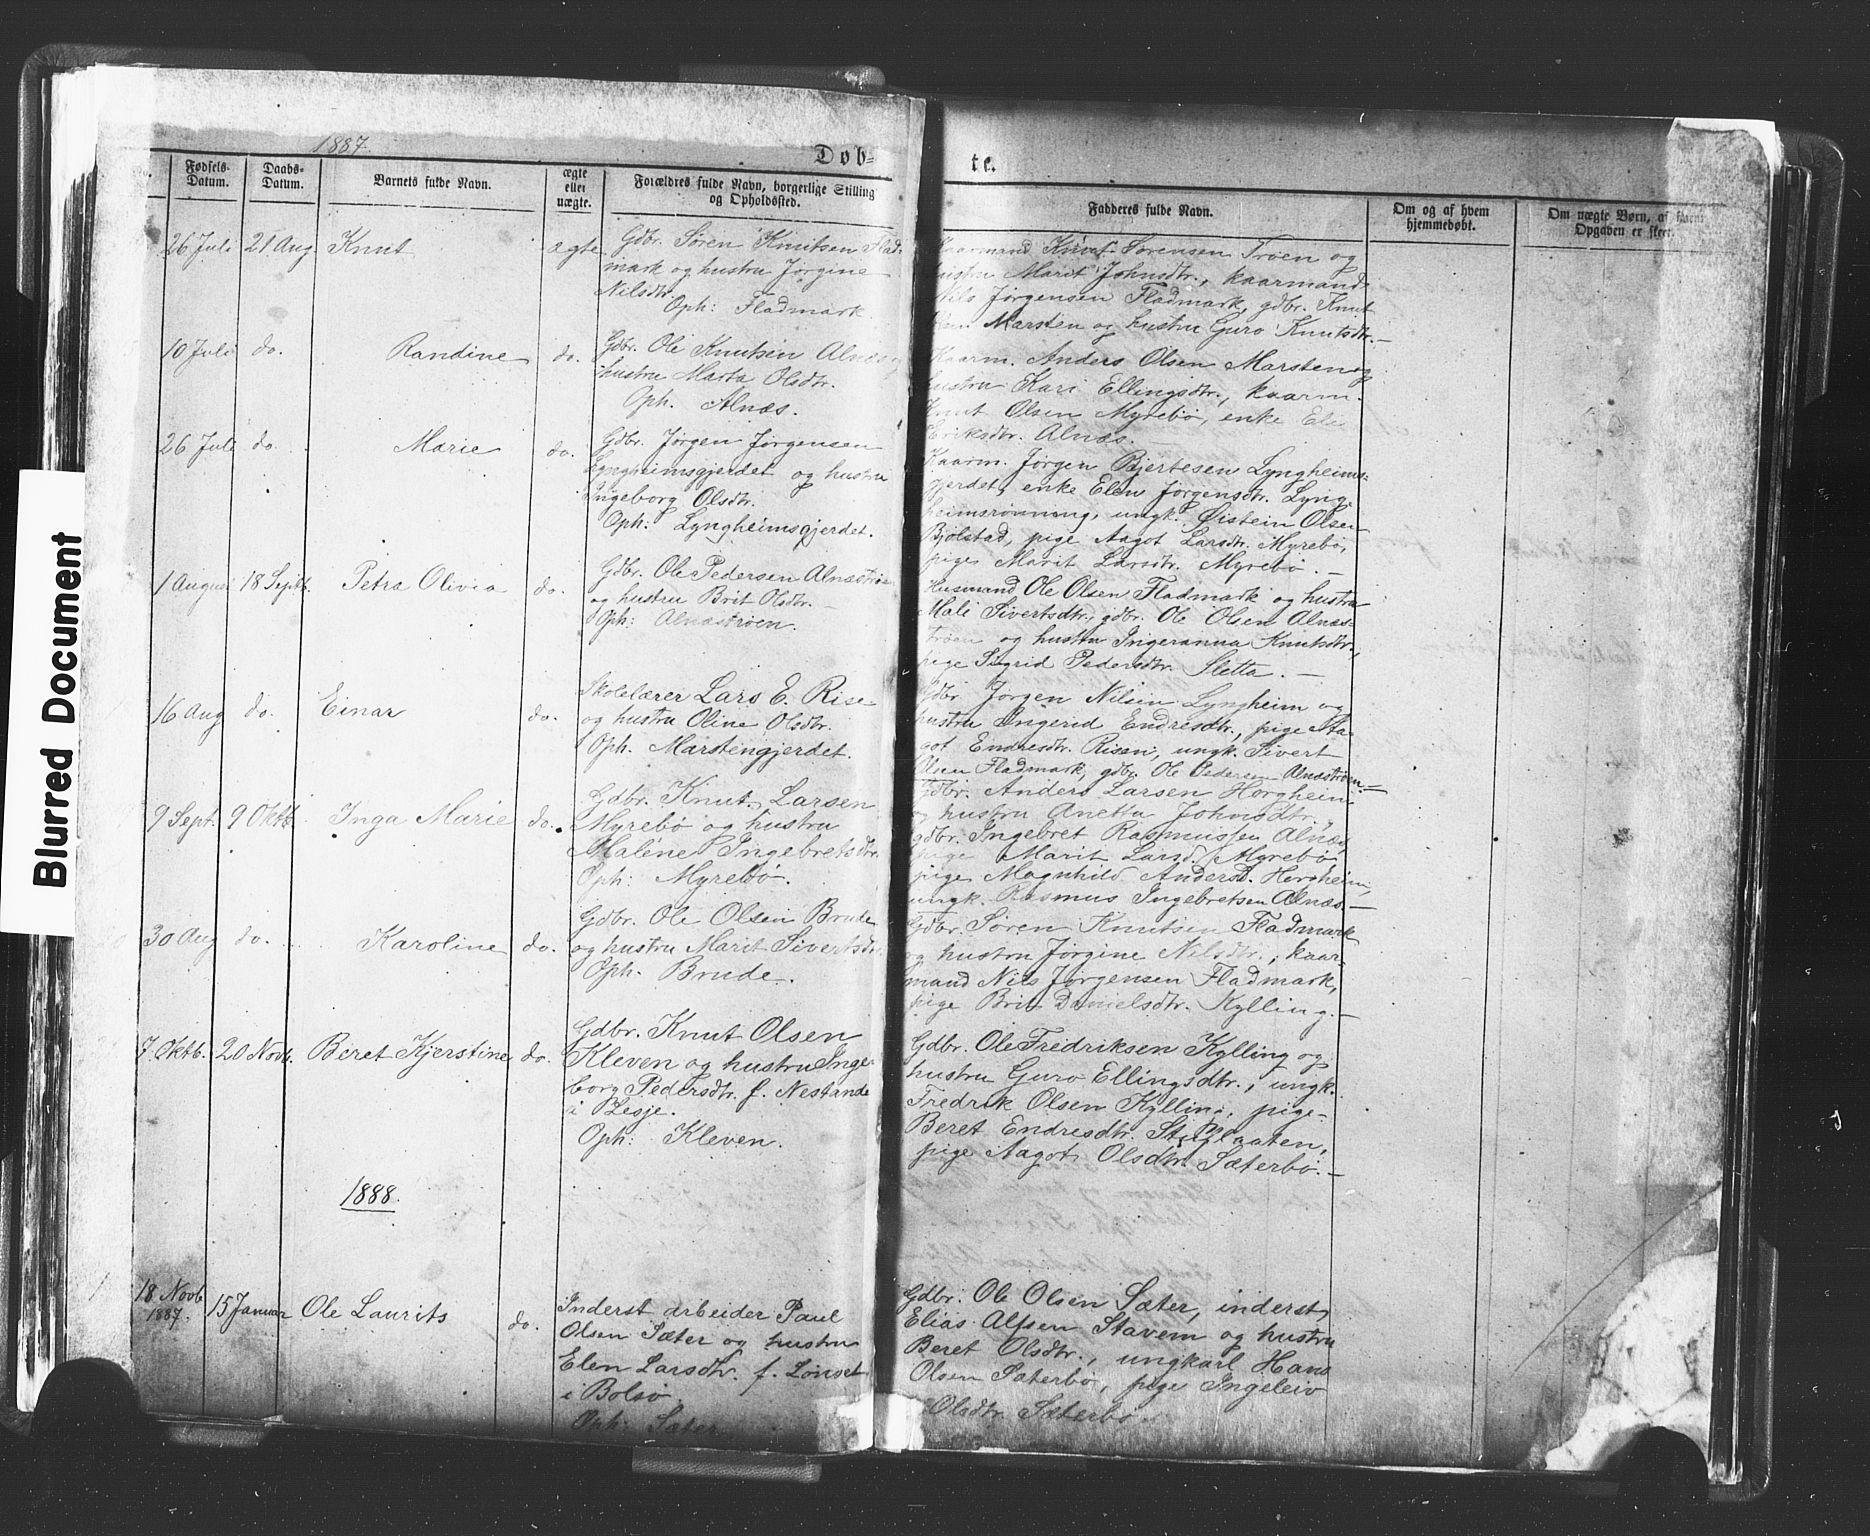 1887.
Døb-
te.
Fødsels-
Datum.
Daabs-
Datum.
Barnets fulde Navn.
ægte
eller
uægte.
Forældres fulde Navn, borgerlige Stilling
og Opholdssted.
Fadderes fulde Navn.
Om og af hvem
hjemmedøbt.
Om uægte Børn, af hvem
Opgaven er skeet.
26 Juli 21 Aug. Knut ægte
Gdbr. Søren Knutsen Flad-
mark og hustru Jørgine
Nilsdtr.
Oph: Fladmark.
Kaarmand Knut Sørensen Trøen og
hustru Marit Johnsdtr., kaarmand
Nils Jørgensen Fladmark, gdbr. Knut
Marsten og hustru Guro Knutsdtr. —
10 Juli do. Randine do.
Gdbr. Ole Knutsen Alnæs og
hustru Marta Olsdtr.
Oph. Alnæs.
Kaarm. Anders Olsen Marsten og
hustru Kari Ellingsdtr., kaarm.
Knut Olsen Myrebø, enke Eli
Eriksdtr. Alnæs.
26 Juli do. Marie do.
Gdbr. Jørgen Jørgensen
Lyngheimsgjerdet og hustru
Ingeborg Olsdtr.
Oph: Lyngheimsgjerdet.
Kaarm. Jørgen Bjertesen Lyngheims-
gjerdet, enke Elen Jørgensdtr. Lyng-
heimsrønning, ungk. Øistein Olsen
Bjølstad, pige Aagot Larsdtr. Myrebø,
pige Marit Larsdtr. Myrebø. —
1 August 18 Septb. Petra Olivia do.
Gdbr. Ole Pedersen Alnæstrøen
og hustru Brit Olsdtr. —
Oph: Alnæstrøen.
Husmand Ole Olsen Fladmark og hustru
Mali Sivertsdtr., gdbr. Ole Olsen Alnæs-
trøen og hustru Ingeranna Knutsdtr.,
pige Sigrid Pedersdtr. Sletta. —
16 Aug do. Einar do.
Skolelærer Lars E. Rise
og hustru Oline Olsdtr.
Oph. Marstengjerdet.
Gdbr. Jørgen Nilsen Lyngheim og
hustru Ingerid Endresdtr., pige Aa-
got Endresdtr. Risan, ungk. Sivert
Olsen Fladmark, gdbr. Ole Pedersen Alnæstrøen. —
9 Sept. 9 Oktb. Inga Marie do.
Gdbr. Knut Larsen
Myrebø og hustru
Malene Ingebretsdtr.
Oph: Myrebø.
Gdbr. Anders Larsen Horgheim
og hustru Anetta Johnsdtr.,
gdbr. Ingebret Rasmussen Alnæs,
pige Marit Larsd. Myrebø
pige Magnhild Andersd. Horgheim,
ungk. Rasmus Ingebretsen Alnæs. —
30 Aug do. Karoline do.
Gdbr. Ole Olsen Brude
og hustru Marit Sivertsdtr.
Oph. Brude.
Gdbr. Søren Knutsen Fladmark
og hustru Jørgine Nilsdtr., kaar-
mand Nils Jørgensen Fladmark,
pige Brit Danielsdtr. Kylling. —
7 Oktb. 20 Novb. Beret Kjerstine do.
Gdbr. Knut Olsen
Kleven og hustru Inge-
borg Pedersdtr. f. Nestande
i Lesje.
Oph: Kleven.
Gdbr. Ole Fredriksen Kylling og
hustru Guro Ellingsdtr., ungk.
Fredrik Olsen Kylling, pige
Beret Endresdtr.
pige Aagot Olsdtr. Sæterbø. —
1888.
18 Novb.
1887. 15 Januar Ole Laurits do.
Inderst arbeider Paul
Olsen Sæter og hustru
Elen Larsdtr. f. Lønset
i Bolsø.
Oph: Sæter
Gdbr. Ole Olsen Sæter, inderst
Elias Alfsen Stavem og hustru
Beret Olsdtr., ungkarl Hans
Olsen Sæterbø, pige Ingeleiv
Olsdtr Sæterbø.
Blurred Document